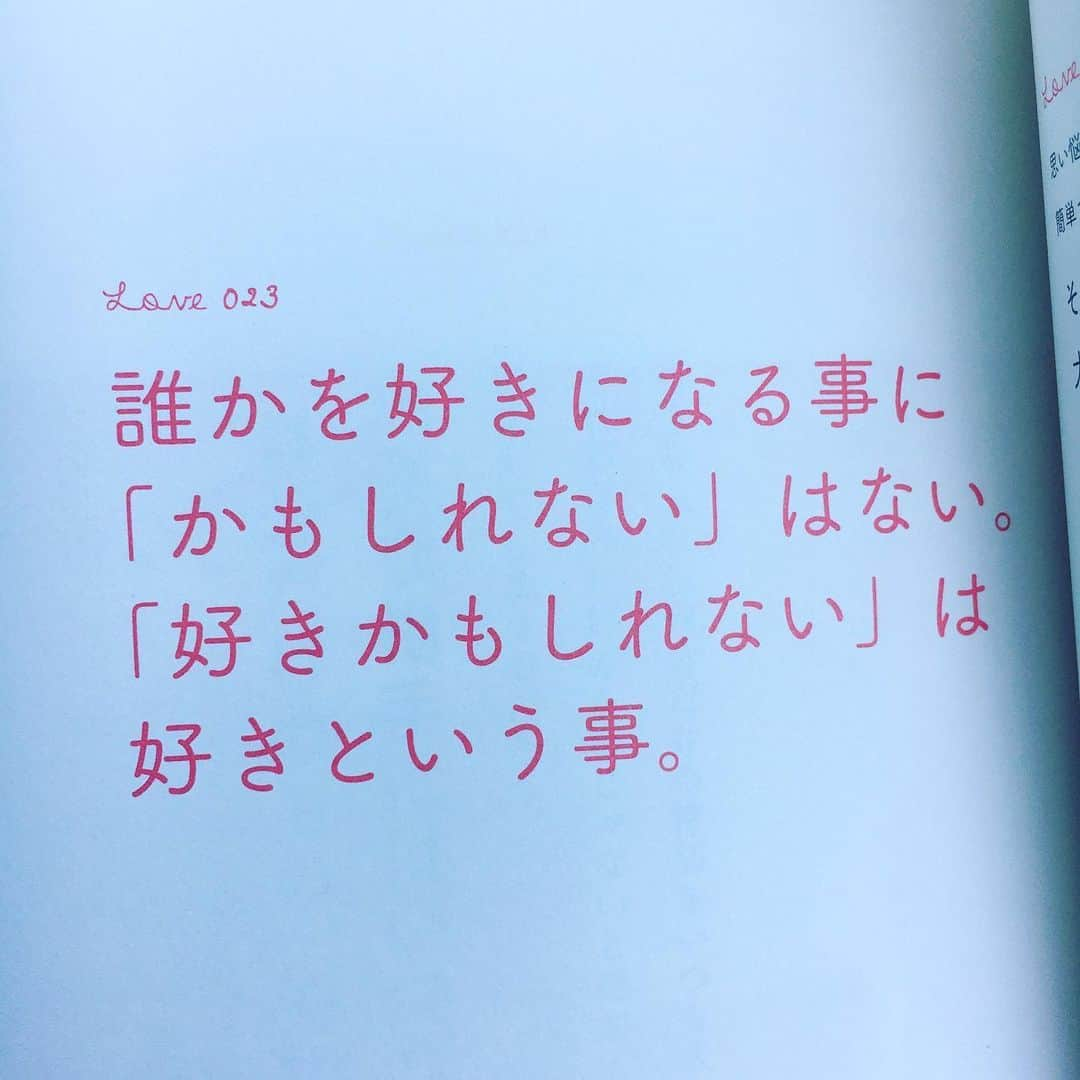 Love 023
誰かを好きになる事に
「かもしれない」はない。
「好きかもしれない」は
好きという事。
Love
思い悩
簡単
そ